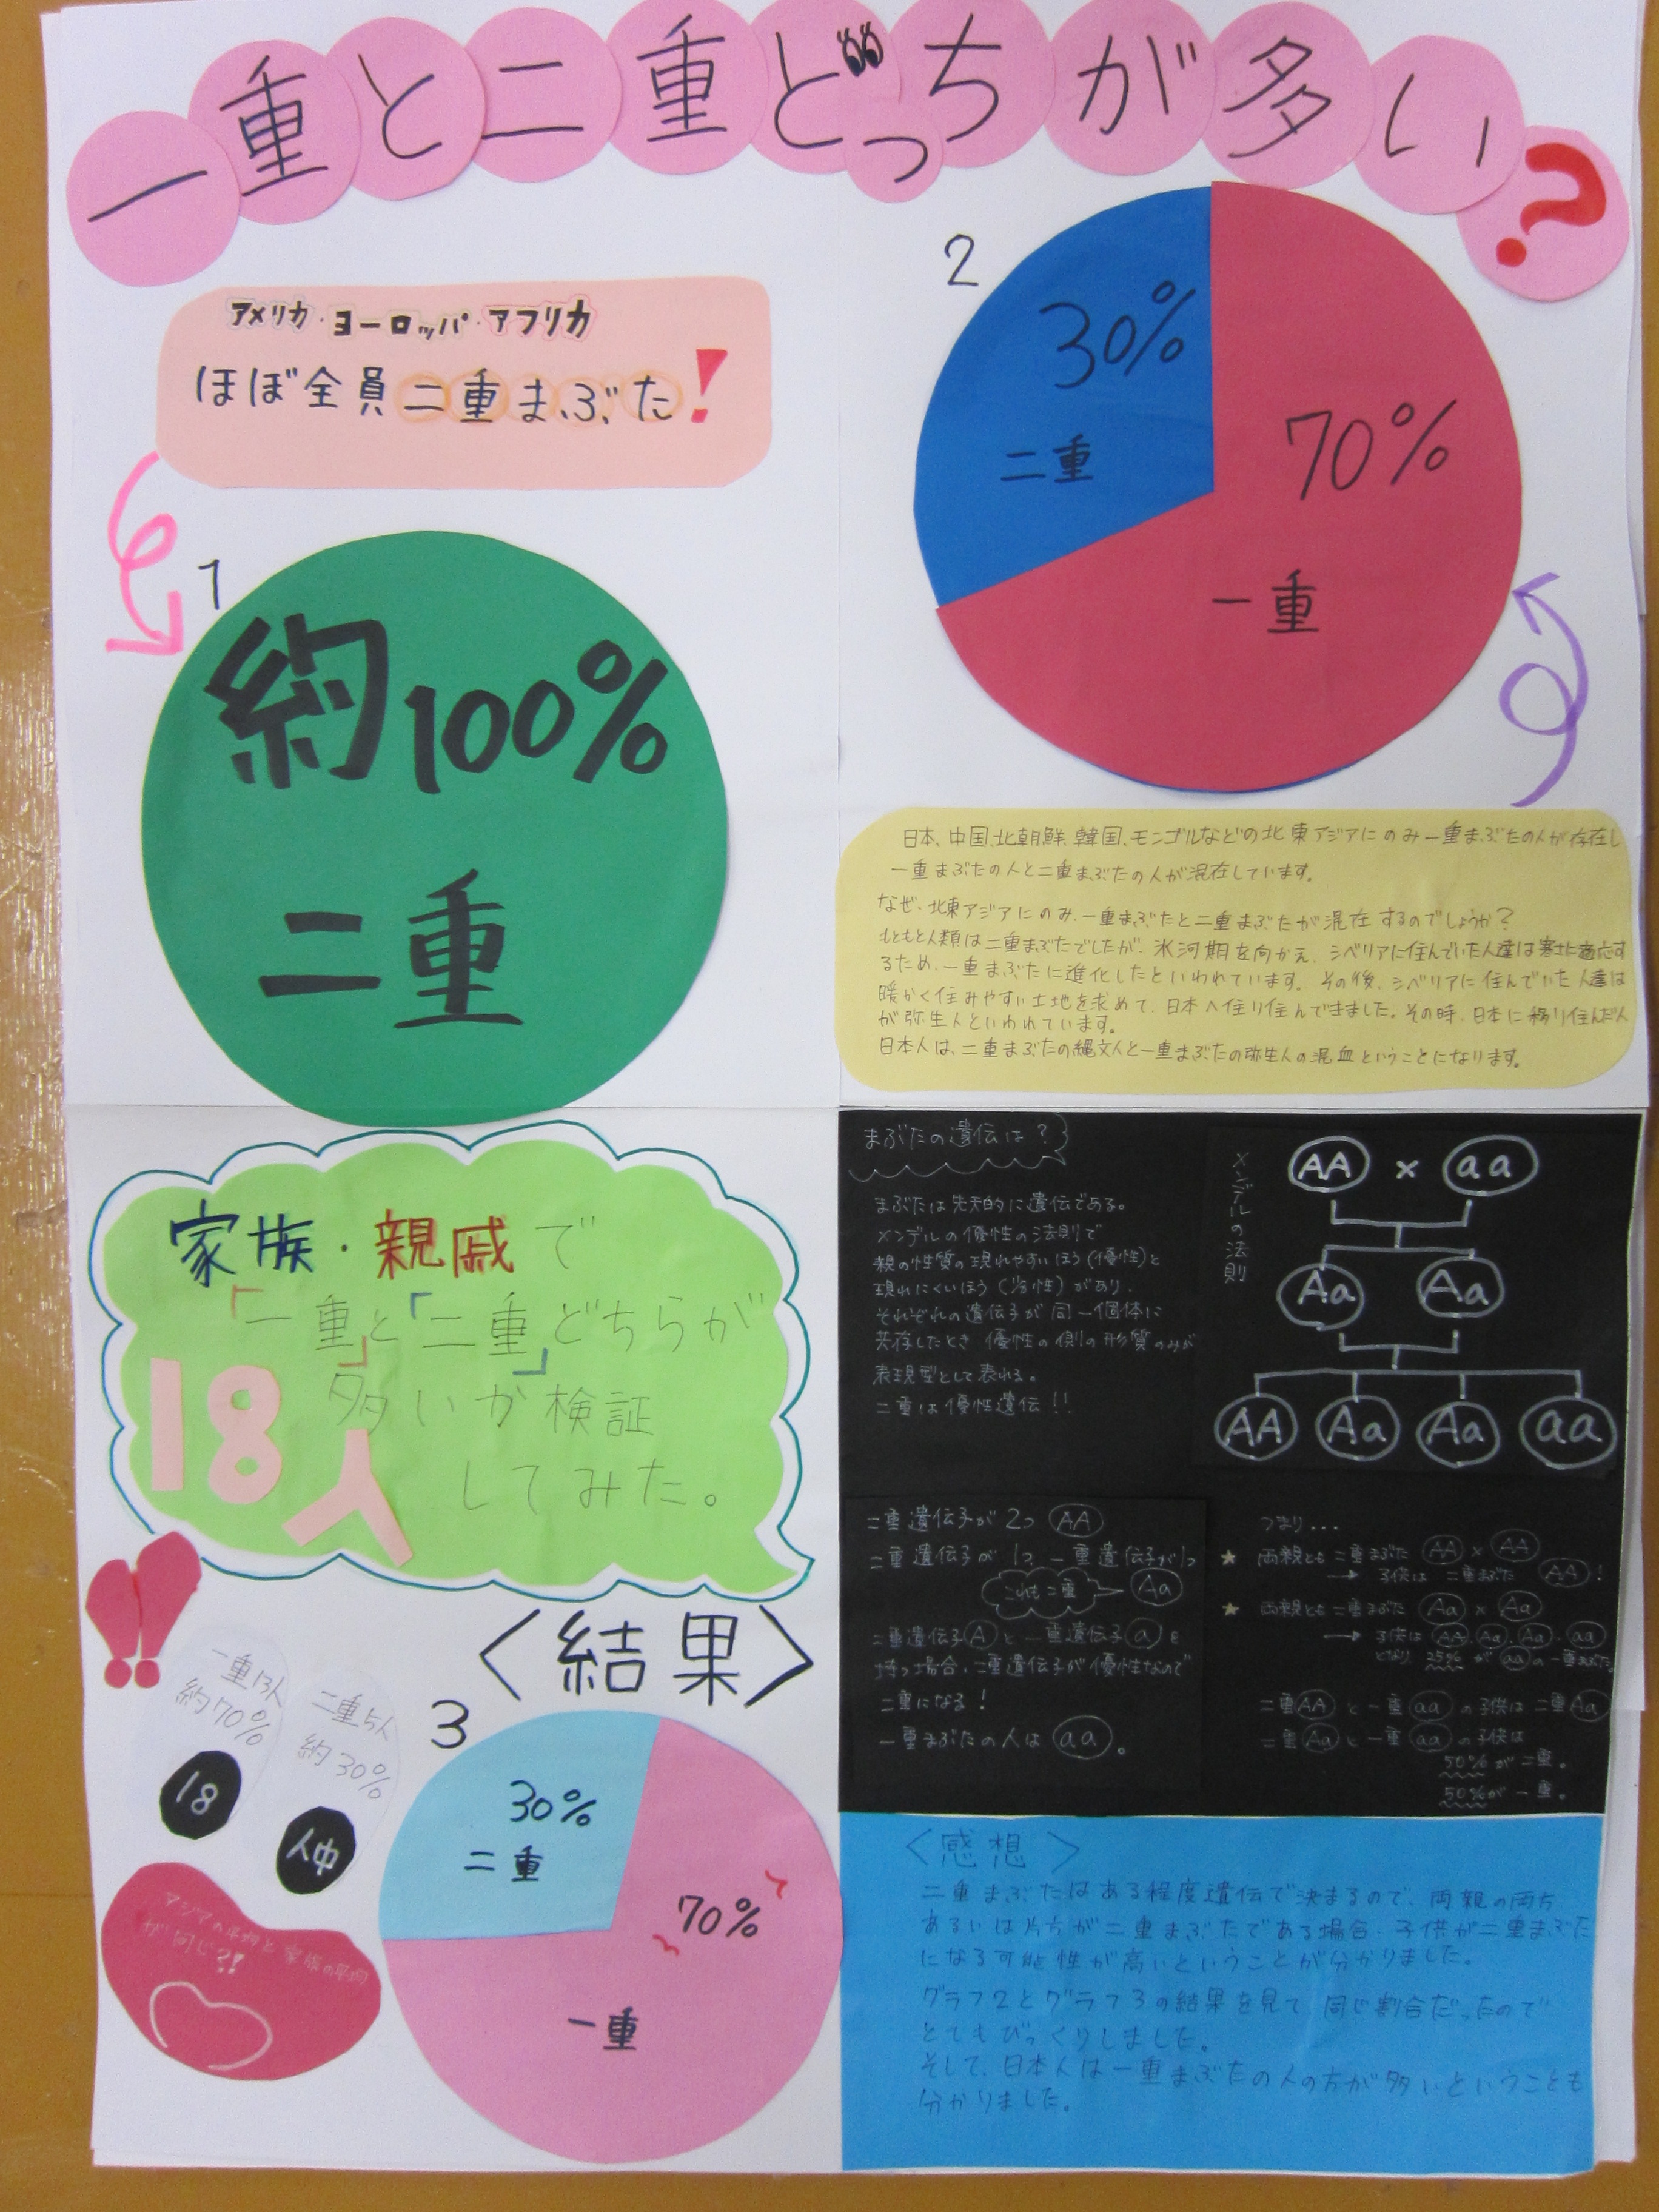 一重と二重どっちが多い?
アメリカ・ヨーロッパ・アフリカ
ほぼ全員二重まぶた!
1
約100%
二重
2
30%
二重
70%
一重
日本、中国、北朝鮮、韓国、モンゴルなどの北東アジアにのみ一重まぶたの人が存在し
一重まぶたの人と二重まぶたの人が混在しています。
なぜ、北東アジアにのみ、一重まぶたと二重まぶたが混在するのでしょうか?
もともと人類は二重まぶたでしたが、氷河期を向かえ、シベリアに住んでいた人達は寒さに適応す
るため、一重まぶたに進化したといわれています。その後、シベリアに住んでいた人達は
暖かく住みやすい土地を求めて、日本へ住り住んできました。その時、日本に移り住んだ人
が弥生人といわれています。
日本人は、二重まぶたの縄文人と一重まぶたの弥生人の混血ということになります。
家族・親戚で
「一重」と「二重」どちらが
多いか検証
してみた。
18人
!!
一重13人
約70%
二重5人
約30%
18
人中
アジアの平均と家族の平均
が同じ?!
〈結果〉
3
30%
二重
70%
一重
まぶたの遺伝は?
まぶたは先天的に遺伝である。
メンデルの優性の法則で
親の性質の現れやすいほう(優性)と
現れにくいほう(劣性)があり、
それぞれの遺伝子が同一個体に
共存したとき優性の側の形質のみが
表現型として表れる。
二重は優性遺伝!!
メンデルの法則
AA × aa
Aa Aa
AA Aa Aa aa
二重遺伝子が2つ AA
二重遺伝子が1つ、一重遺伝子が1つ
これも二重 Aa
二重遺伝子Aと一重遺伝子aを
持つ場合、二重遺伝子が優性なので
二重になる!
一重まぶたの人は aa。
つまり...
★ 両親とも二重まぶた AA × AA
→ 子供は二重まぶた AA!
★ 両親とも二重まぶた Aa × Aa
→ 子供は AA・Aa・Aa・aa
となり 25%が aa の一重まぶた。
二重 AA と一重 aa の子供は二重 Aa
二重 Aa と一重 aa の子供は
50%が二重。
50%が一重。
〈感想〉
二重まぶたはある程度遺伝で決まるので、両親の両方
あるいは片方が二重まぶたである場合、子供が二重まぶた
になる可能性が高いということが分かりました。
グラフ2とグラフ3の結果を見て同じ割合だったので
とてもびっくりしました。
そして、日本人は一重まぶたの人の方が多いということも
分かりました。